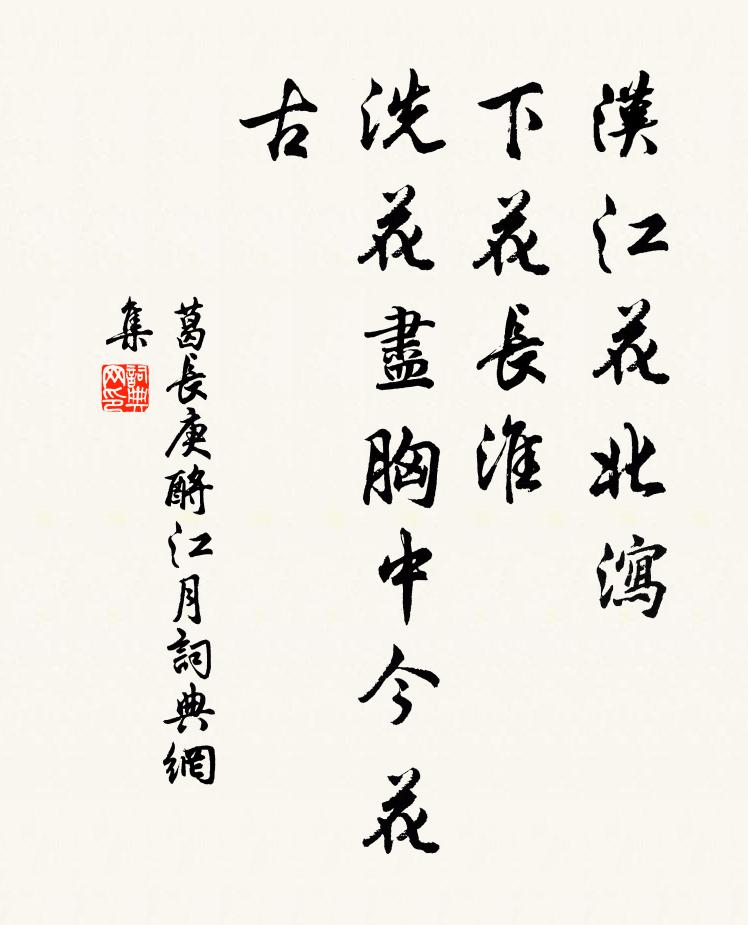 漢江花北瀉
下花長淮
洗花盡胸中今花
古
葛長庚酹江月詞典網
集
詞典网印